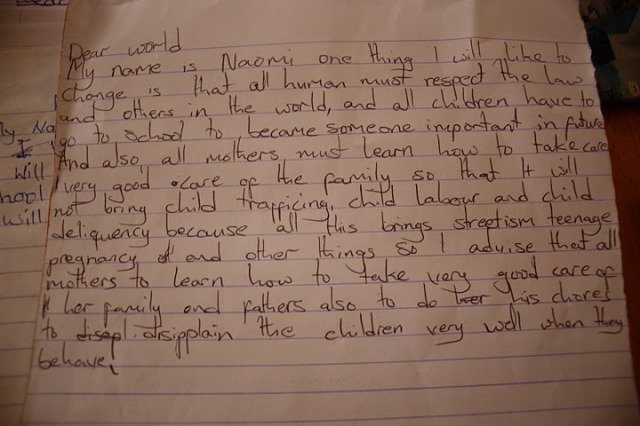 Dear world
My name is Naomi one thing I will like to
change is that all human must respect the law
and others in the world, and all children have to
go to school to became someone important in future
And also, all mothers must learn how to take care
very good care of the family so that It will
not bring child trafficing, child labour and child
deliquency because all this brings streetism teenage
pregnancy and other things so I advise that all
mothers to learn how to take very good care of
her family and fathers also to do his chores
to disipplain the children very well when they
behave,
ly Na
I
will
hool
will